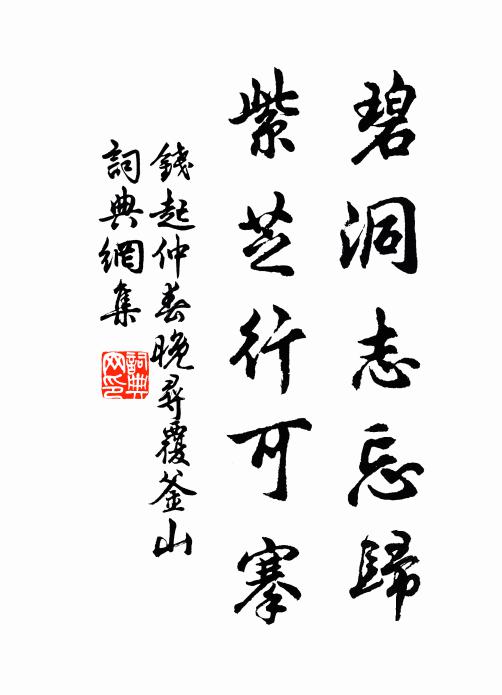 碧洞志忘歸
紫芝行可搴
錢起仲春晚尋覆釜山
詞典網集
詞典
网印